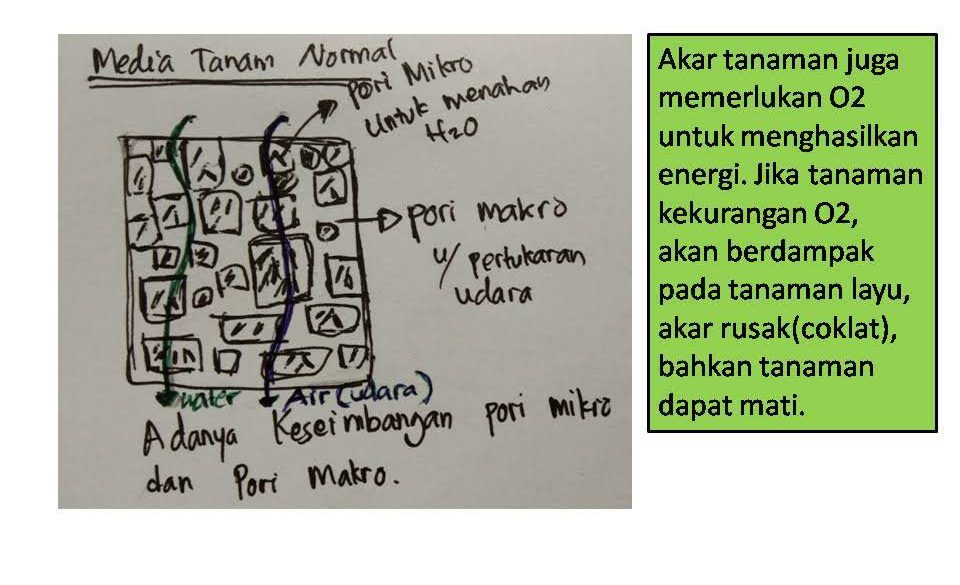 Media Tanam Normal
pori Mikro
Untuk menahan
H2O
pori makro
u/ pertukaran
udara
water
Air (udara)
Adanya Keseimbangan pori mikro
dan Pori Makro.
Akar tanaman juga
memerlukan O2
untuk menghasilkan
energi. Jika tanaman
kekurangan O2,
akan berdampak
pada tanaman layu,
akar rusak(coklat),
bahkan tanaman
dapat mati.